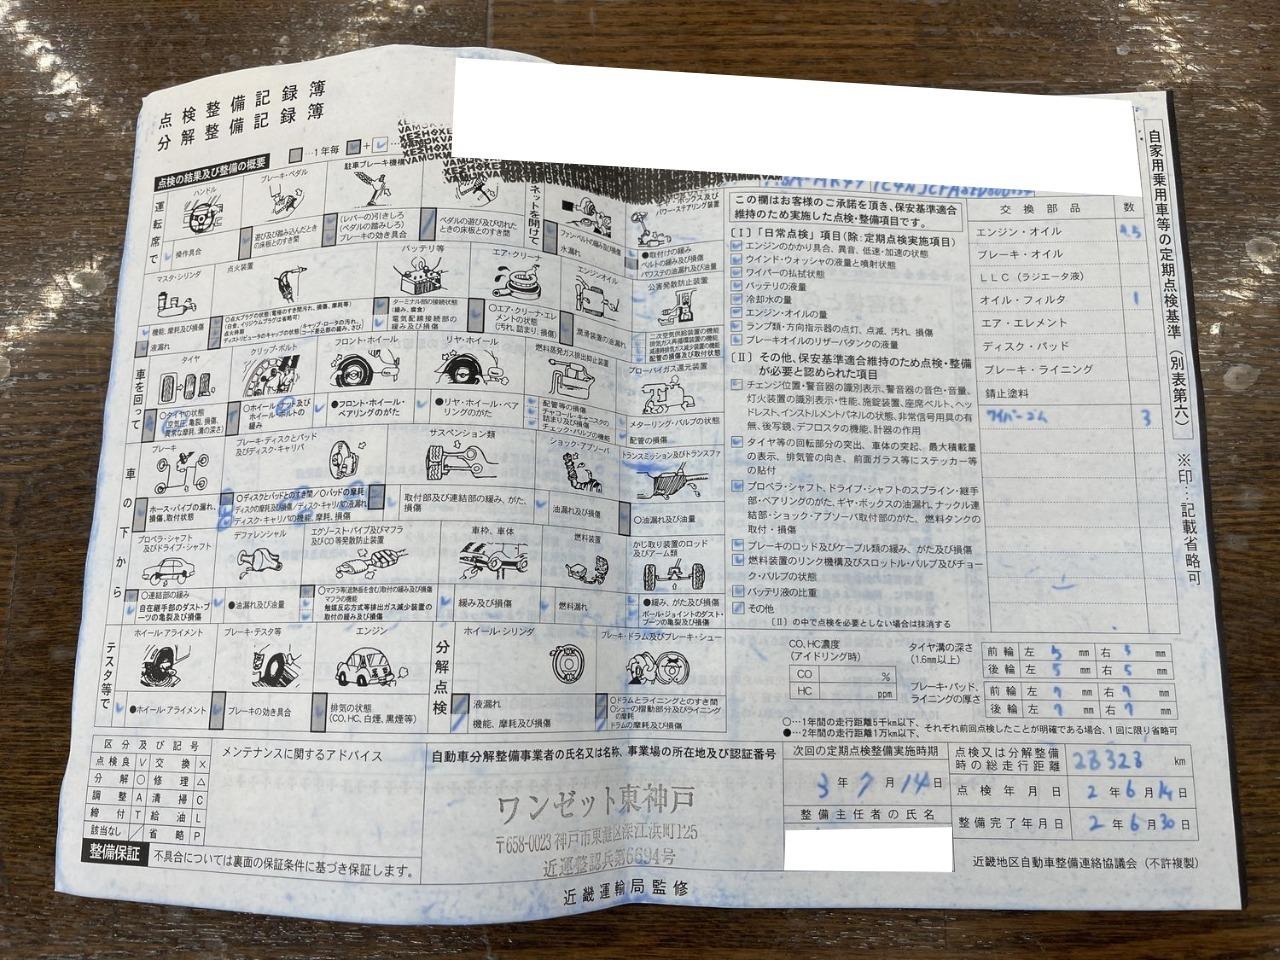 点検整備記録簿
分解整備記録簿
…1年毎
点検の結果及び整備の概要
運転席で
ハンドル
操作具合
ブレーキ・ペダル
遊び及び踏み込んだときの床板とのすき間
駐車ブレーキ機構
(レバーの引きしろ)
(ペダルの踏みしろ)
ブレーキの効き具合
ペダルの遊び及び切れたときの床板とのすき間
ネットを開けて
ファンベルトの緩み及び損傷
水漏れ
パワー・ステアリング装置
●取付けの緩み
ベルトの緩み及び損傷
パワステの油漏れ及び油量
マスタ・シリンダ
機能、摩耗及び損傷
液漏れ
点火装置
バッテリ等
ターミナル部の接続状態
(緩み、腐食)
電気配線接続部の緩み及び損傷
エア・クリーナ
○エア・クリーナ・エレメントの状態
(汚れ、詰まり、損傷)
エンジンオイル
潤滑装置の油漏れ
公害発散防止装置
二次空気供給装置の機能
排気ガス再循環装置の機能
減速時排気ガス減少装置の機能
配管の損傷及び取付状態
車を回って
タイヤ
○タイヤの状態
クリップ・ボルト
フロント・ホイール
●フロント・ホイール・ベアリングのがた
リヤ・ホイール
●リヤ・ホイール・ベアリングのがた
燃料蒸発ガス排出抑止装置
配管等の損傷
チャコール・キャニスタの詰まり及び損傷
チェック・バルブの機能
ブローバイガス還元装置
メターリング・バルブの状態
配管の損傷
車の下から
ブレーキ
ホース・パイプの漏れ、損傷、取付状態
ブレーキ・ディスクとパッド及びディスク・キャリパ
○ディスクとパッドとのすき間／○パッドの摩耗
ディスクの摩耗及び損傷／ディスク・キャリパの液漏れ
ディスク・キャリパの機能、摩耗、損傷
サスペンション類
取付部及び連結部の緩み、がた、損傷
ショック・アブソーバ
油漏れ及び損傷
トランスミッション及びトランスファ
○油漏れ及び油量
プロペラ・シャフト及びドライブ・シャフト
○連結部の緩み
自在継手部のダスト・ブーツの亀裂及び損傷
デファレンシャル
●油漏れ及び油量
エグゾースト・パイプ及びマフラ及びCO等発散防止装置
○マフラ等(遮熱板を含む)取付の緩み及び損傷
マフラの機能
触媒反応方式等排出ガス減少装置の取付の緩み及び損傷
車枠、車体
緩み及び損傷
燃料装置
燃料漏れ
かじ取り装置のロッド及びアーム類
●緩み、がた及び損傷
ボール・ジョイントのダスト・ブーツの亀裂及び損傷
テスタ等で
ホイール・アライメント
●ホイール・アライメント
ブレーキ・テスタ等
ブレーキの効き具合
エンジン
排気の状態
(CO、HC、白煙、黒煙等)
分解点検
ホイール・シリンダ
液漏れ
機能、摩耗及び損傷
ブレーキ・ドラム及びブレーキ・シュー
○ドラムとライニングとのすき間
○シューの摺動部分及びライニングの摩耗
ドラムの摩耗及び損傷
この欄はお客様のご承諾を頂き、保安基準適合維持のため実施した点検・整備項目です。
[Ⅰ]「日常点検」項目(除:定期点検実施項目)
エンジンのかかり具合、異音、低速・加速の状態
ウインド・ウォッシャの液量と噴射状態
ワイパーの払拭状態
バッテリの液量
冷却水の量
エンジン・オイルの量
ランプ類・方向指示器の点灯、点滅、汚れ、損傷
ブレーキオイルのリザーバタンクの液量
[Ⅱ] その他、保安基準適合維持のため点検・整備が必要と認められた項目
チェンジ位置・警音器の識別表示、警音器の音色・音量、
灯火装置の識別表示・性能、施錠装置、座席ベルト、ヘッ
ドレスト、インストルメントパネルの状態、非常信号用具の有
無、後写鏡、デフロスタの機能、計器の作用
タイヤ等の回転部分の突出、車体の突起、最大積載量
の表示、排気管の向き、前面ガラス等にステッカー等
の貼付
プロペラ・シャフト、ドライブ・シャフトのスプライン・継手
部・ベアリングのがた、ギヤ・ボックスの油漏れ、ナックル連
結部・ショック・アブソーバ取付部のがた、燃料タンクの
取付・損傷
ブレーキのロッド及びケーブル類の緩み、がた及び損傷
燃料装置のリンク機構及びスロットル・バルブ及びチョー
ク・バルブの状態
バッテリ液の比重
その他
[Ⅱ]の中で点検を必要としない場合は抹消する
交換部品 数
エンジン・オイル 4.5
ブレーキ・オイル
LLC(ラジエータ液)
オイル・フィルタ 1
エア・エレメント
ディスク・パッド
ブレーキ・ライニング
錆止塗料
ワイパーゴム 3
自家用乗用車等の定期点検基準(別表第六)
※印…記載省略可
CO、HC濃度
(アイドリング時)
CO %
HC ppm
タイヤ溝の深さ
(1.6mm以上)
前輪 左 5 mm 右 5 mm
後輪 左 5 mm 右 5 mm
ブレーキ・パッド、ライニングの厚さ
前輪 左 7 mm 右 7 mm
後輪 左 7 mm 右 7 mm
○…1年間の走行距離5千km以下、
●…2年間の走行距離1万km以下、
それぞれ前回点検したことが明確である場合、1回に限り省略可
区分及び記号
点検良 V 交換 X
分解 O 修理 △
調整 A 清掃 C
締付 T 給油 L
該当なし / 省略 P
整備保証
不具合については裏面の保証条件に基づき保証します。
メンテナンスに関するアドバイス
自動車分解整備事業者の氏名又は名称、事業場の所在地及び認証番号
ワンゼット東神戸
〒658-0023 神戸市東灘区深江浜町125
近運整認兵第6694号
次回の定期点検整備実施時期
3年7月14日
整備主任者の氏名
点検又は分解整備時の総走行距離 28328 km
点検年月日 2年6月14日
整備完了年月日 2年6月30日
近畿地区自動車整備連絡協議会(不許複製)
近畿運輸局監修